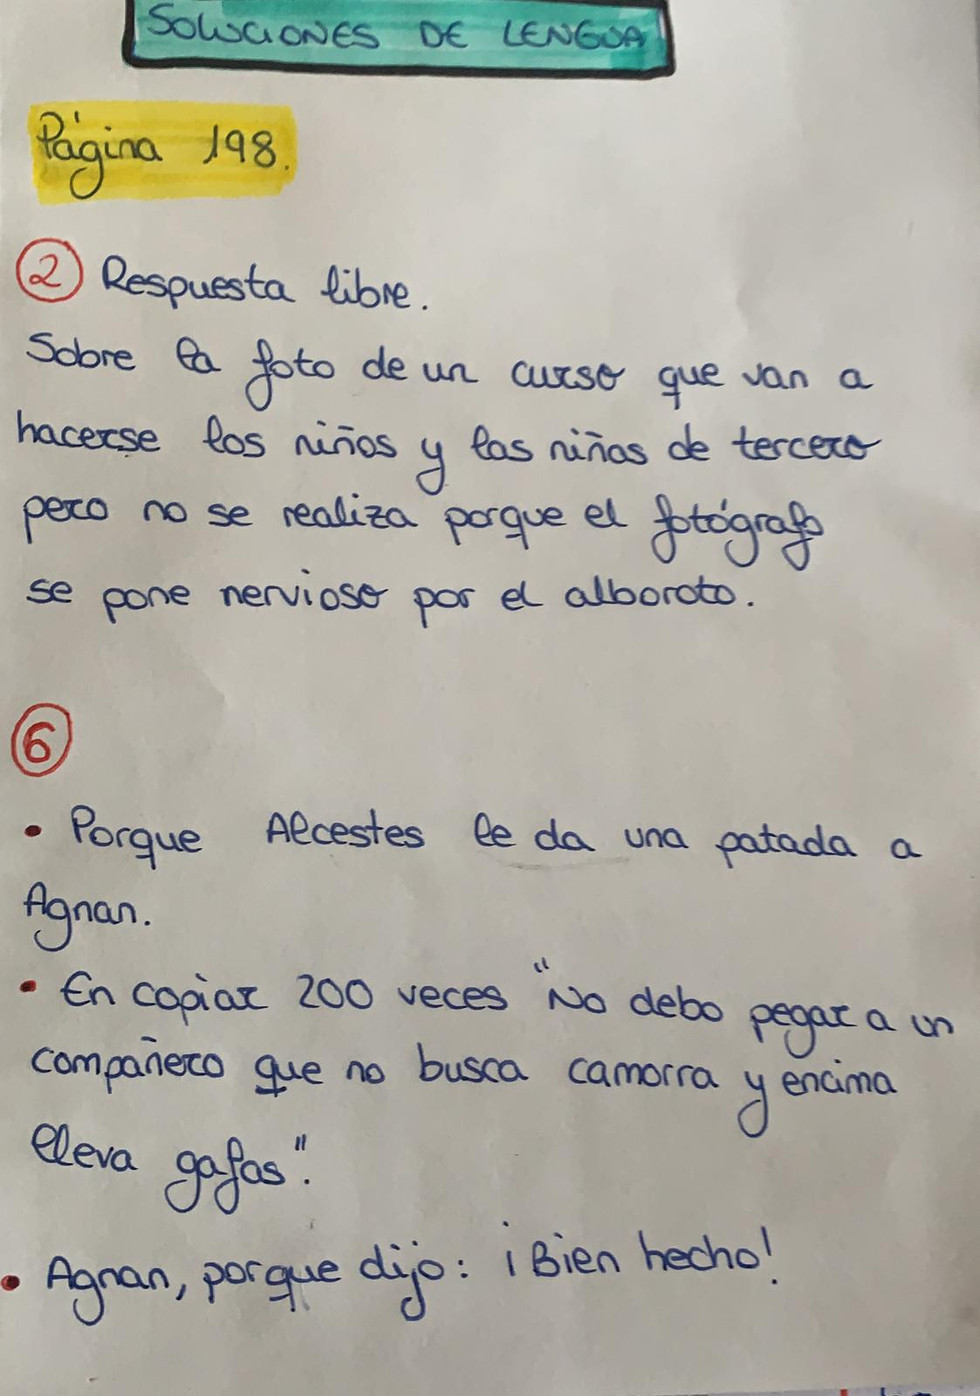 SOLUCIONES DE LENGUA
Página 198.
2 Respuesta libre.
Sobre la foto de un curso que van a
hacerse los niños y las niñas de tercero
pero no se realiza porque el fotógrafo
se pone nervioso por el alboroto.
6
• Porque Alcestes le da una patada a
Agnan.
• En copiar 200 veces "No debo pegar a un
compañero que no busca camorra y encima
lleva gafas".
• Agnan, porque dijo: ¡Bien hecho!